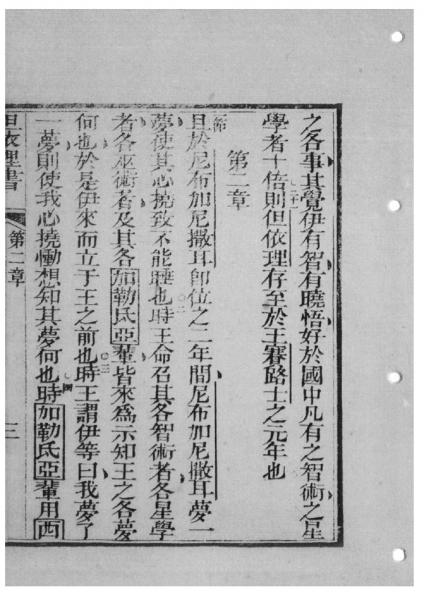 之各事其覺伊有智有曉悟好於國中凡有之智術之星
學者十倍則但依理存至於王賽路士之元年也
第二章
節
且於尼布加尼撒耳卽位之二年間尼布加尼撒耳夢一
夢使其心撓致不能睡也時王命召其各智術者各星學
者各巫術者及其各加勒氐亞輩皆來為示知王之各夢
何也於是伊來而立于王之前也時王謂伊等曰我夢了
一夢則使我心撓慟想知其夢何也時加勒氐亞輩用西
但依理書
第二章
三